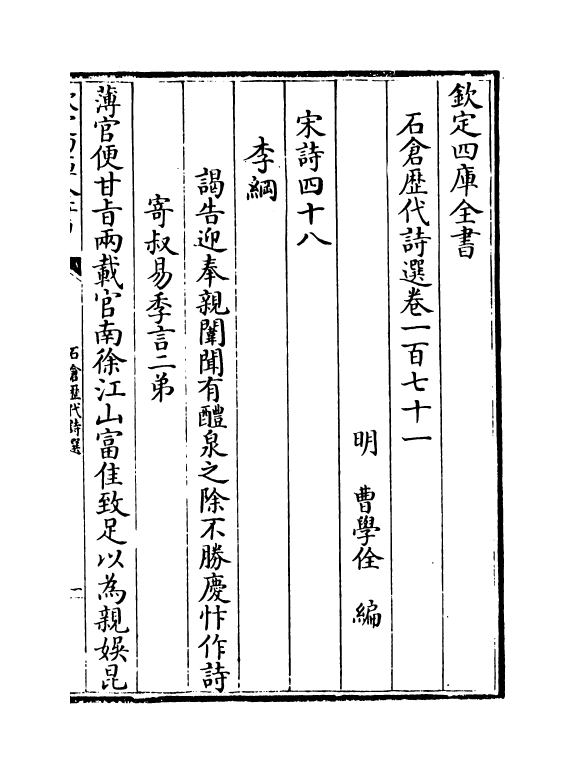 欽定四庫全書
石倉歴代詩選卷一百七十一
明 曹學佺 編
宋詩四十八
李綱
謁告迎奉親闈聞有醴泉之除不勝慶忭作詩
寄叔易季言二弟
薄官便甘㫖兩載官南徐江山富佳致足以為親娛昆
石倉歴代詩選
一